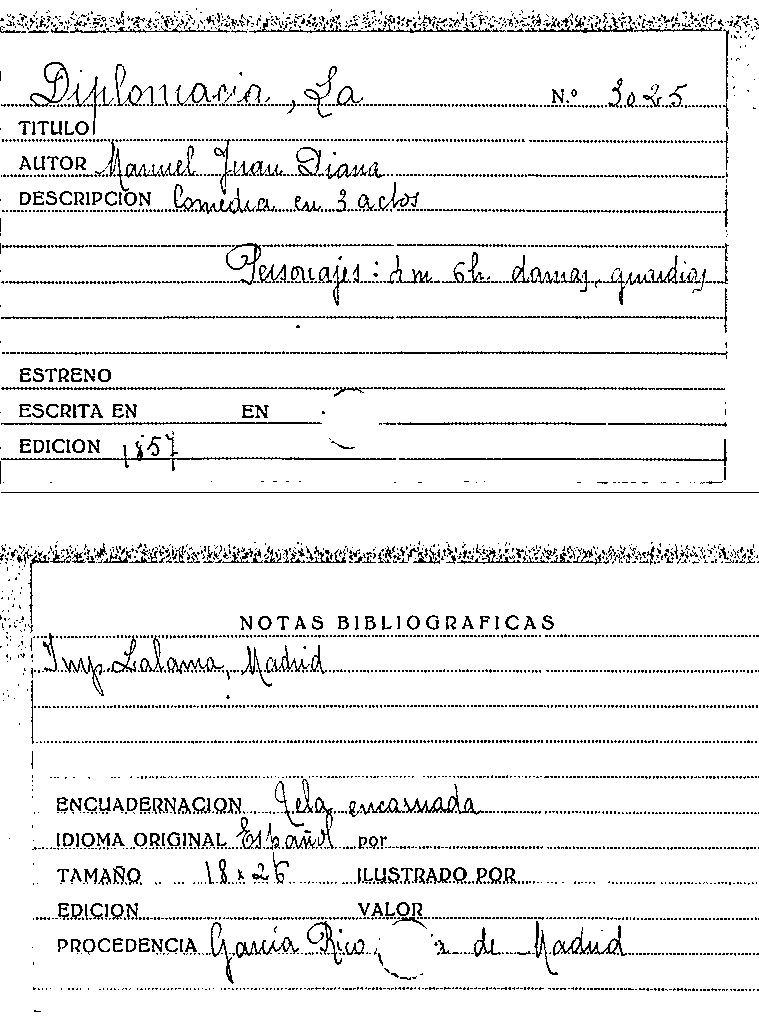 Diplomacia, La N.º 3025
TITULO
AUTOR Manuel Juan Diana
DESCRIPCION Comedia en 3 actos
Personajes: 2m 6h. damas, guardias
ESTRENO
ESCRITA EN EN
EDICION 1857
NOTAS BIBLIOGRAFICAS
Imp. Lalama, Madrid
ENCUADERNACION Tela encarnada
IDIOMA ORIGINAL Español por
TAMAÑO 18 x 26 ILUSTRADO POR
EDICION VALOR
PROCEDENCIA García Rico, de Madrid